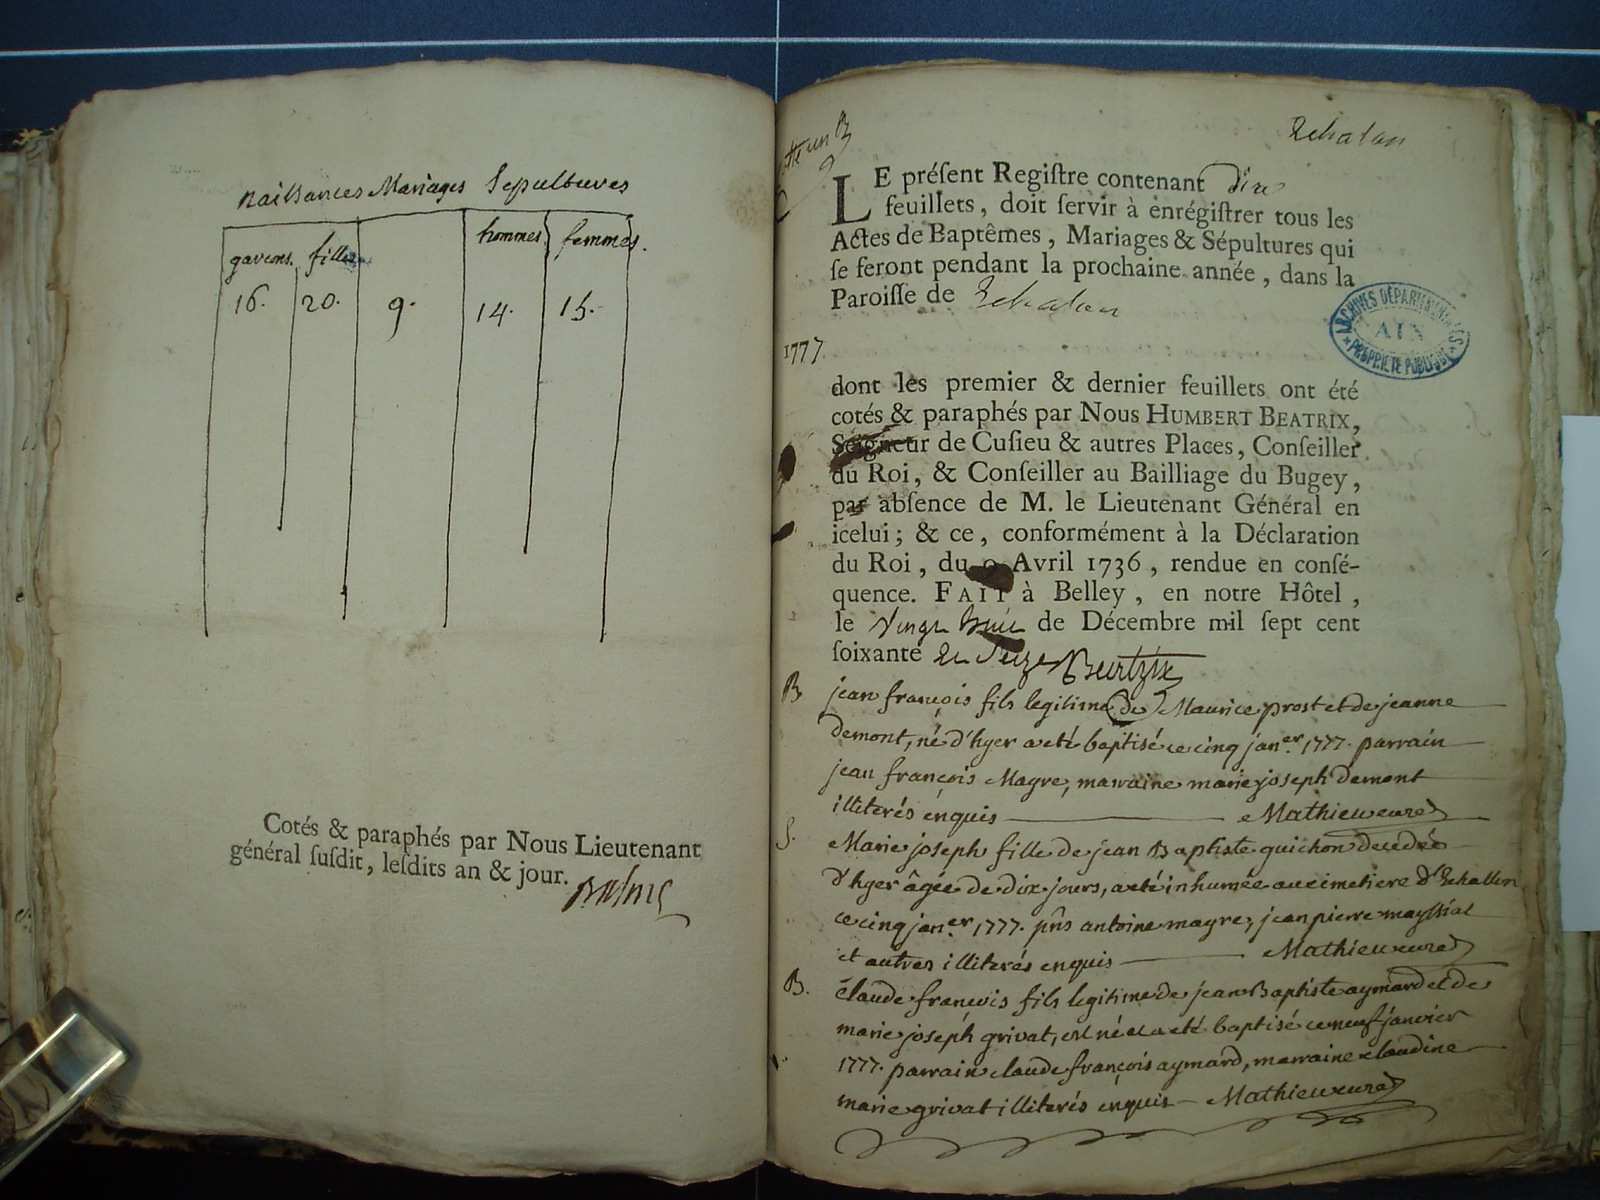 naissances Mariages Sepultures
garcons. filles hommes femmes.
16. 20. 9. 14. 15.
Cotés & paraphés par Nous Lieutenant
général ſuſdit, leſdits an & jour.
Echalon
LE préſent Regiſtre contenant dix
feuillets, doit ſervir à enrégiſtrer tous les
Actes de Baptêmes, Mariages & Sépultures qui
ſe feront pendant la prochaine année, dans la
Paroiſſe de Echalon
ARCHIVES DÉPARTEMENTALES
AIN
PROPRIÉTÉ PUBLIQUE
1777.
dont les premier & dernier feuillets ont été
cotés & paraphés par Nous HUMBERT BEATRIX,
Seigneur de Cuſieu & autres Places, Conſeiller
du Roi, & Conſeiller au Bailliage du Bugey,
par abſence de M. le Lieutenant Général en
icelui; & ce, conformément à la Déclaration
du Roi, du 9 Avril 1736, rendue en conſé-
quence. FAIT à Belley, en notre Hôtel,
le Vingt huit de Décembre mil ſept cent
ſoixante et Seize Beatrix
B. jean françois fils legitime de Maurice prost et de jeanne
Demont, né d'hyer a eté baptisé ce cinq jan.er 1777. parrain
jean françois Mayre, marraine marie joseph Demont
illiterés enquis Mathieu curé
S. Marie joseph fille de jean Baptiste guichon decedée
d'hyer âgée de dix jours, a eté inhumée au cimetiere d'Echallon
ce cinq jan.er 1777. pñs antoine mayre, jean pierre mayssiat
et autres illiterés enquis Mathieu curé
B. claude françois fils legitime de jean Baptiste aymard et de
marie joseph grivat, est né et a eté baptisé ce neuf janvier
1777. parrain claude françois aymard, marraine claudine
marie grivat illiterés enquis Mathieu curé